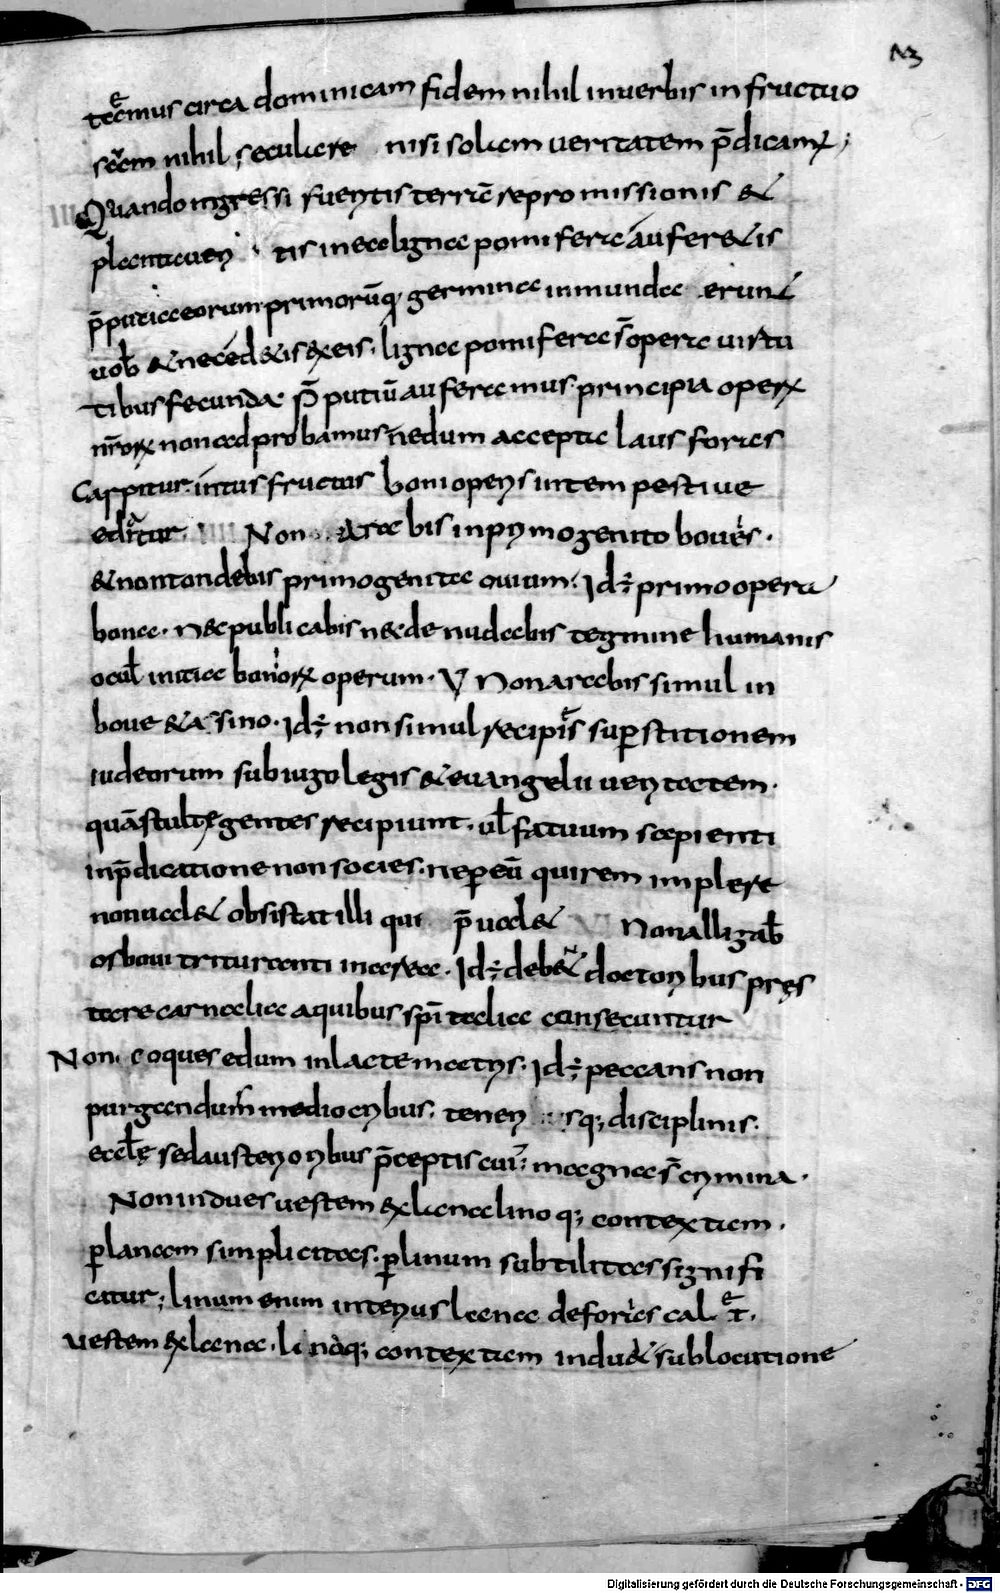 tecmus circa dominicam fidem nihil inuerbis infructuo
scam nihil seculare nisi solam ueritatem p̄dicamꝰ;
III Quando ingressi fueritis terrā repromissionis &
plantaueritis in ea ligna pomifera auferetis
p̄putia eorum primorūq; germina inmunda erunt
uob̄ & nec edetis ex eis. ligna pomifera s̄ opera uirtu
tibus fecunda. p̄putiū auferamus. principia operꝝ
nr̄orꝝ non adprobamus nedum accepta laus foras
carpitur. intus fructus boni operis intempestiue
editur. IIII Non arabis in primogenito bouis.
& non tondebis primogenita ouium. Id ÷ primo opera
bona. nec publicabis nec denudabis tegmine humanis
ocul̄ initia bonorꝝ operum. V Non arabis simul in
boue & asino. Id ÷ non simul recipias sup̱stitionem
iudeorum sub iugo legis & euangelii ueritatem.
quā stultę gentes recipiunt. ul̄ fatuum sapienti
in p̄dicatione non socies. ne p̱ eū qui rem implere
non ual& obsistat illi qui p̄ual& VI Non alligab̄
os boui trituranti in area. Id ÷ deb& doctoribus pręs
tare carnalia a quibus sp̄italia consecuntur
Non coques edum in lacte matris. Id ÷ peccans non
purgandum mediocribus. teneriusq; disciplinis.
eccl̄ę sed austerioribus p̄ceptis cui÷ magna s̄ crimina.
Non indues uestem ex lana linoq; contextam.
p̱ lanam simplicitas. p̱ linum subtilitas signifi
catur; linum enim interius lana de foris cal& ÷.
uestem ex lana. linoq; contextam indu& sub locutione